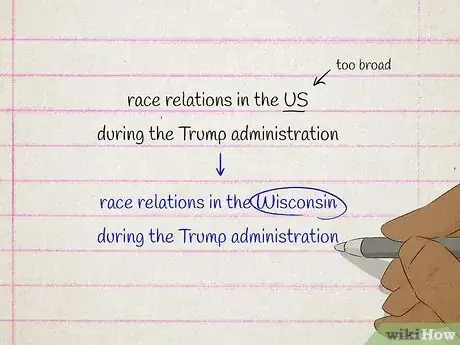 too broad
race relations in the US
during the Trump administration
race relations in the Wisconsin
during the Trump administration
wikiHow